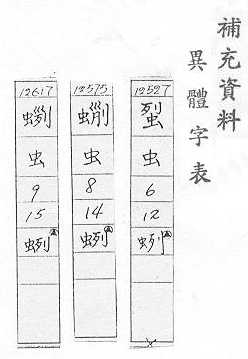 補充資料
異體字表
12527
虫
6
12
蛚
12575
虫
8
14
蛚
12617
虫
9
15
蛚